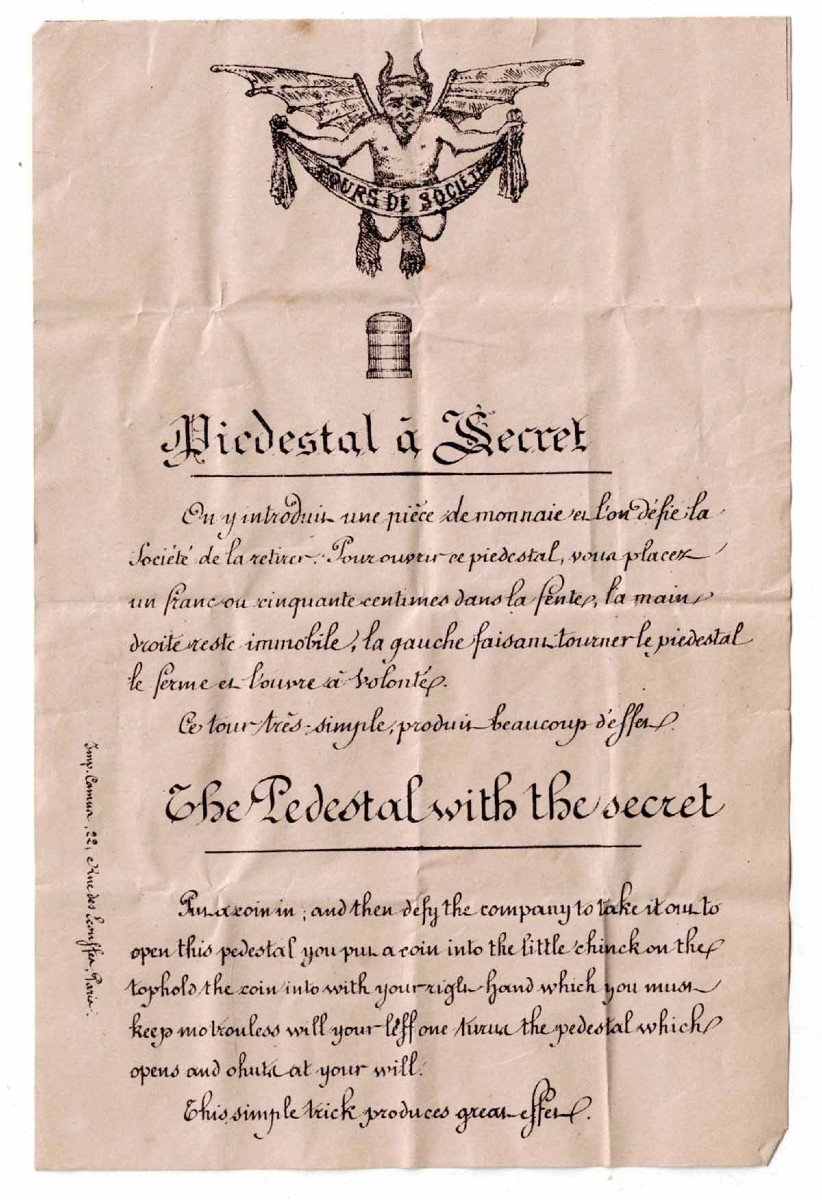 TOURS DE SOCIÉTÉ
Piedestal à Secret
On y introduit une pièce de monnaie et l'on défie la
Société de la retirer. Pour ouvrir ce piedestal, vous placez
un franc ou cinquante centimes dans la fente, la main
droite reste immobile, la gauche faisant tourner le piedestal
le ferme et l'ouvre à volonté.
Ce tour très-simple, produit beaucoup d'effet.
The Pedestal with the secret
Put a coin in; and then defy the company to take it out to
open this pedestal you put a coin into the little chinck on the
tophold the coin into with your right hand which you must
keep motronless will your leff one turns the pedestal which
opens and shuts at your will.
This simple trick produces great effet.
Imp. Camus, 22, Rue des Ecouffes, Paris.